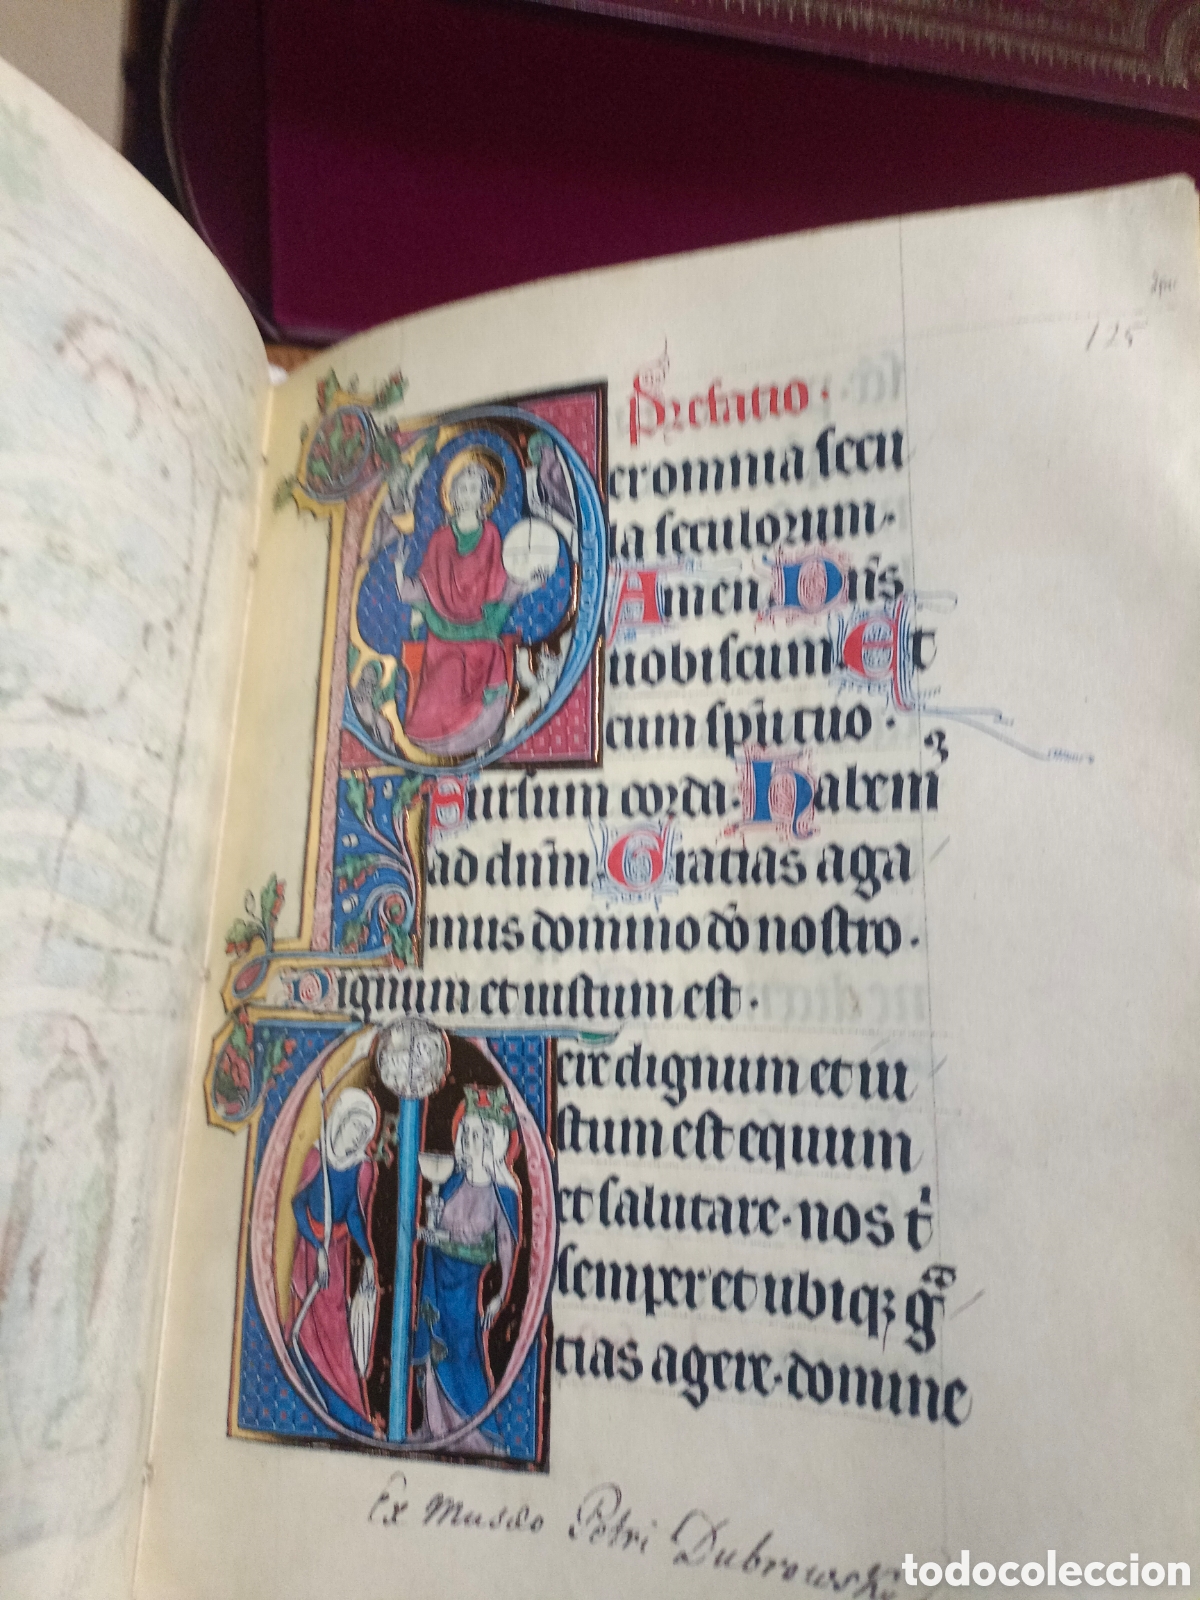 125
Prefatio.
Per omnia secu
la seculorum.
Amen Dn̄s
uobiscum Et
cum sp̄u tuo.
Sursum corda. Habem⁹
ad dn̄m. Gratias aga
mus domino dō nostro.
Dignum et iustum est.
Uere dignum et iu
stum est equum
et salutare. nos t
semper et ubiqꝫ gͣ
tias agere. domine
Ex Musæo Petri Dubrowsky
todocoleccion